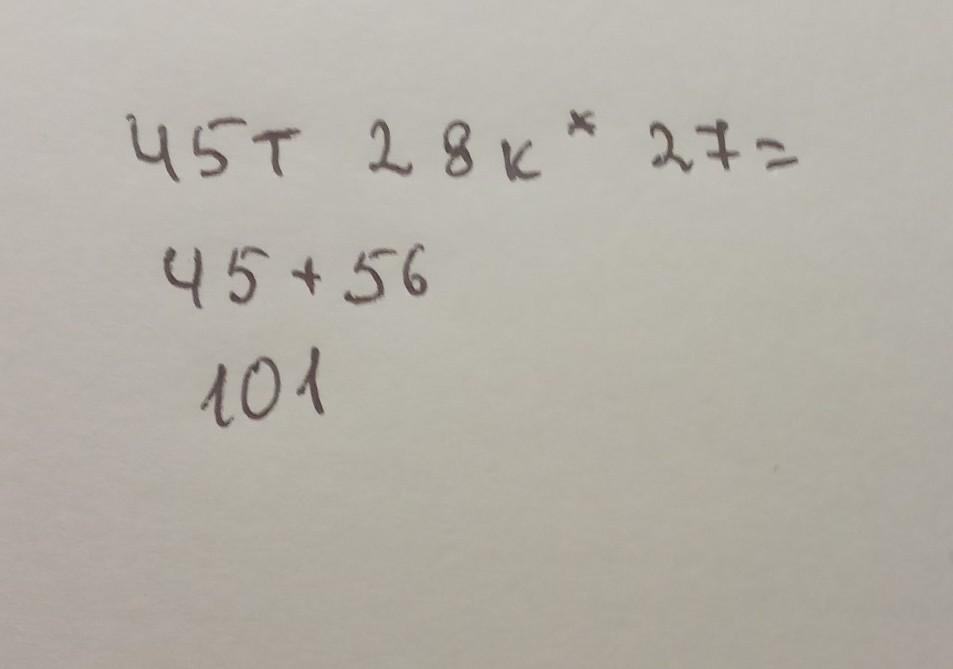 45т 28к * 27=
45+56
101